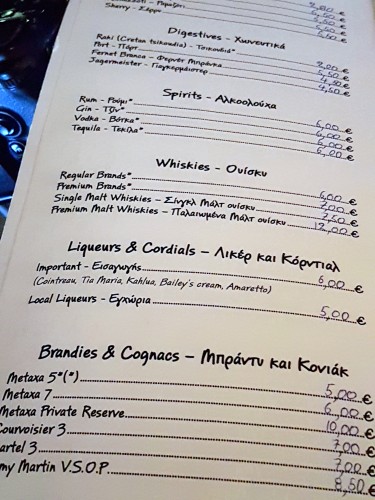 Sherry - Σέρρυ
Digestives - Χωνευτικά
Raki (Cretan tsikoudia) - Τσικουδιά* 3,00 €
Port - Πόρτ 5,50 €
Fernet Branca - Φερνέτ Μπράνκα 4,50 €
Jagermeister - Γιαγκερμάιστερ 4,50 €
Spirits - Αλκοολούχα
Rum - Ρούμι* 6,00 €
Gin - Τζίν* 6,00 €
Vodka - Βότκα* 6,00 €
Tequila - Τεκίλα* 6,00 €
Whiskies - Ουίσκυ
Regular Brands* 6,00 €
Premium Brands* 7,00 €
Single Malt Whiskies - Σίνγκλ Μάλτ ουίσκυ 7,50 €
Premium Malt Whiskies - Παλαιωμένα Μάλτ ουίσκυ 12,00 €
Liqueurs & Cordials - Λικέρ και Κόρντιαλ
Important - Εισαγωγής 6,00 €
(Cointreau, Tia Maria, Kahlua, Bailey's cream, Amaretto)
Local Liqueurs - Εγχώρια 5,00 €
Brandies & Cognacs - Μπράντυ και Κονιάκ
Metaxa 5*(*) 5,00 €
Metaxa 7 6,00 €
Metaxa Private Reserve 10,00 €
Courvoisier 3 7,00 €
artel 3 7,00 €
my Martin V.S.O.P. 8,50 €